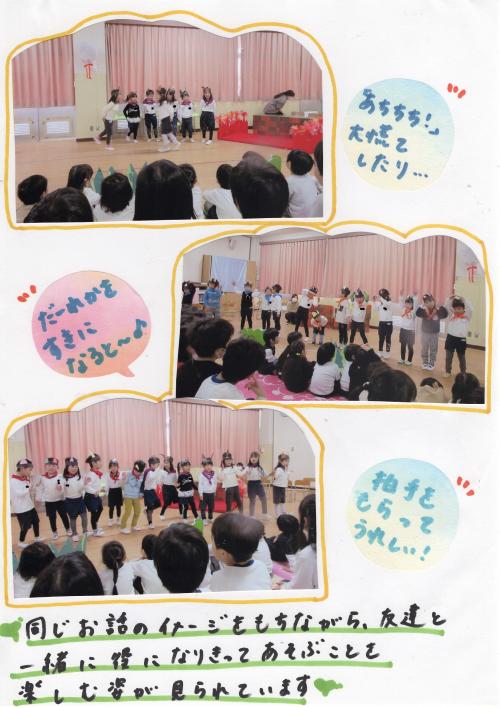 「あちちち!」
大慌て
したり…
だーれかを
すきに
なると~♪
拍手を
もらって
うれしい!
同じお話のイメージをもちながら、友達と
一緒に役になりきってあそぶことを
楽しむ姿が見られています